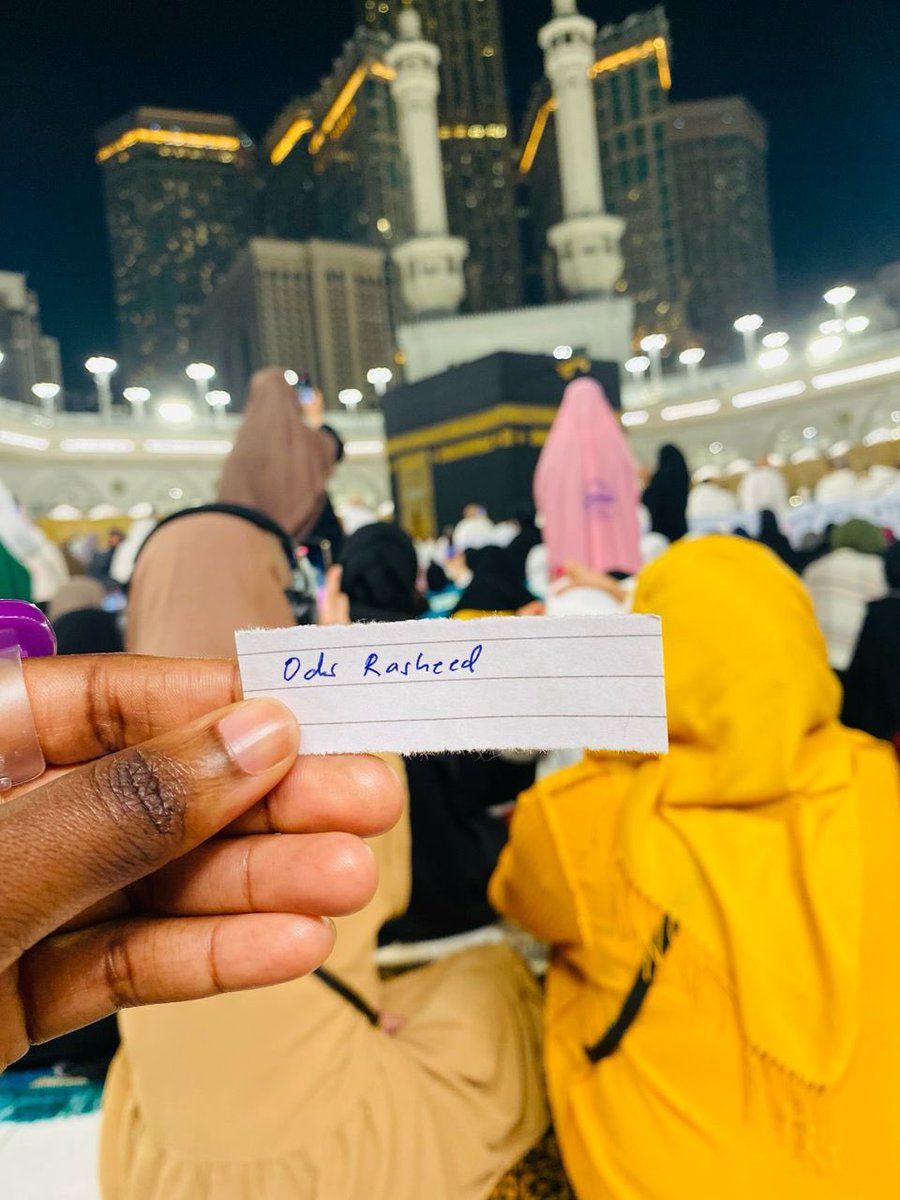 Odur Rasheed